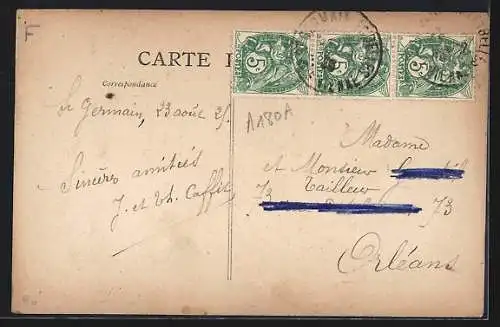 F
CARTE
Correspondance
St Germain, 23 août 25.
Sincères amitiés
J. et Th. Caffet
A180A
5 5 5
Madame
et Monsieur
73 Tailleur
73
Orléans